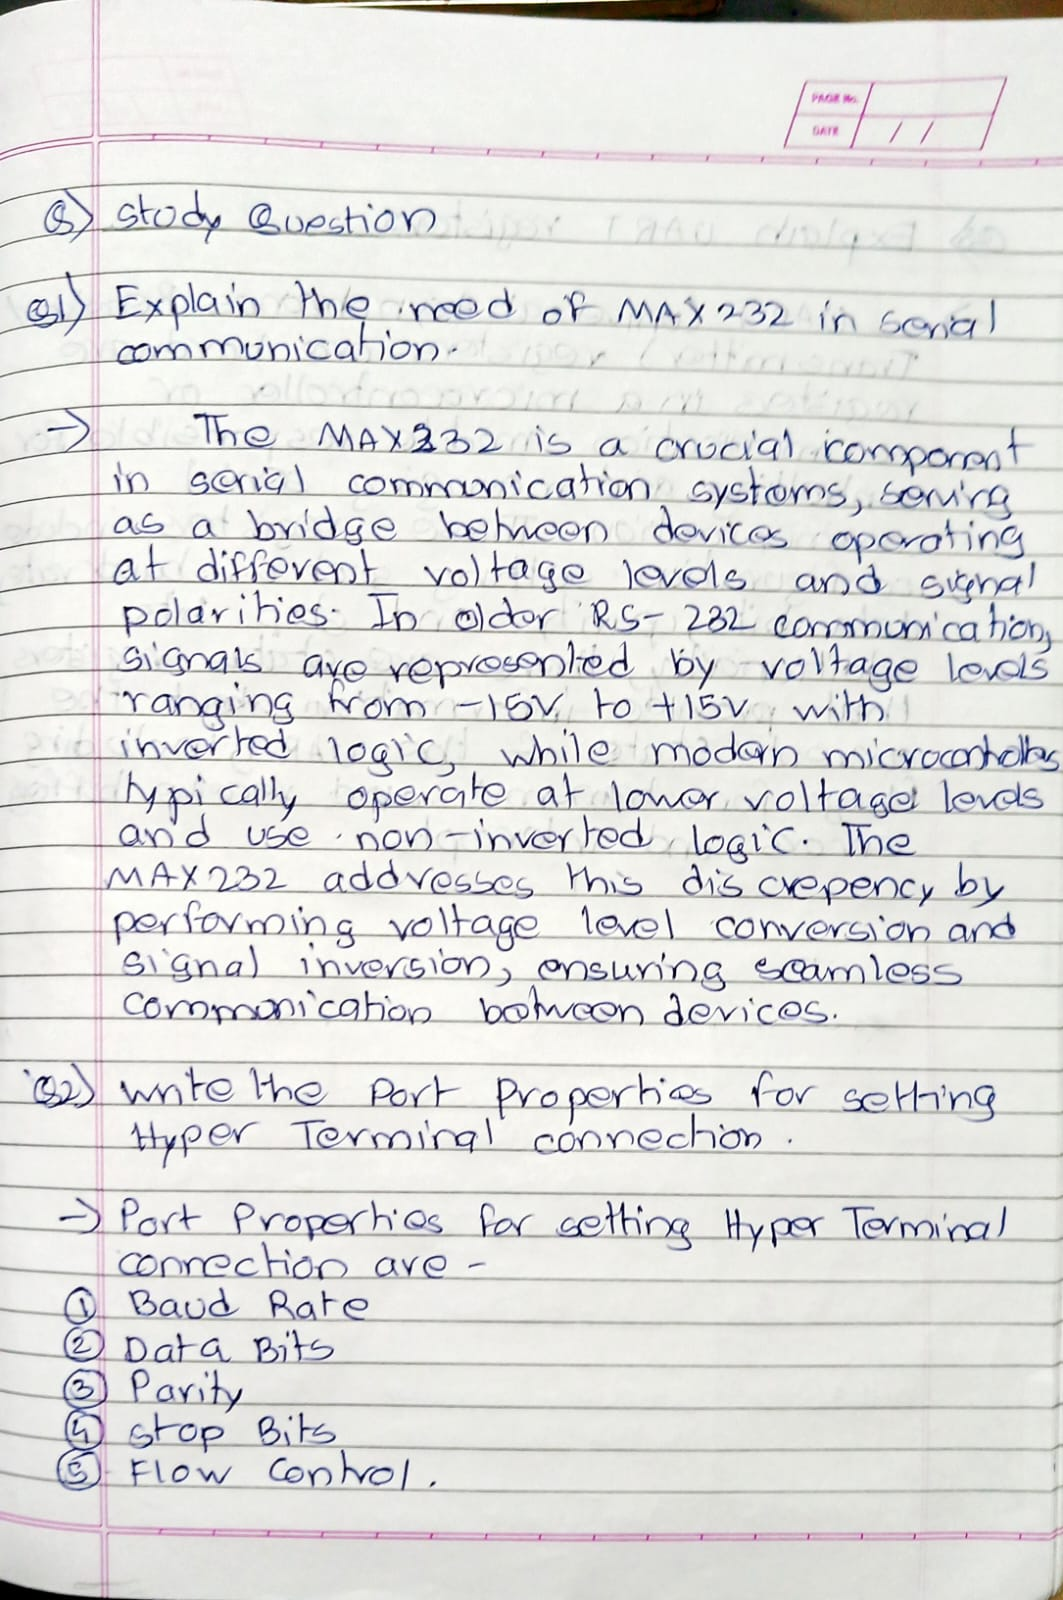 PAGE No.
DATE / /
Q) Study Question
Q1) Explain the need of MAX232 in serial
communication.
→ The MAX232 is a crucial component
in serial communication systems, serving
as a bridge between devices operating
at different voltage levels and signal
polarities. In older RS-232 communication,
signals are represented by voltage levels
ranging from -15V to +15V with
inverted logic, while modern microcontrollers
typically operate at lower voltage levels
and use non-inverted logic. The
MAX232 addresses this discrepency by
performing voltage level conversion and
signal inversion, ensuring seamless
communication between devices.
Q2) Write the Port Properties for setting
Hyper Terminal connection.
→ Port Properties for setting Hyper Terminal
connection are -
① Baud Rate
② Data Bits
③ Parity
④ Stop Bits
⑤ Flow Control.